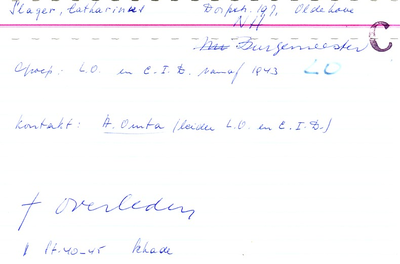 Slager, Catharinus Dorpstr. 197, Oldehove
NH
Burgemeester C
Groep: L.O. en C.I.D. vanaf 1943 LO
Kontakt: A. Omta (leider L.O. en C.I.D.)
† overleden
St. 40-45 schade